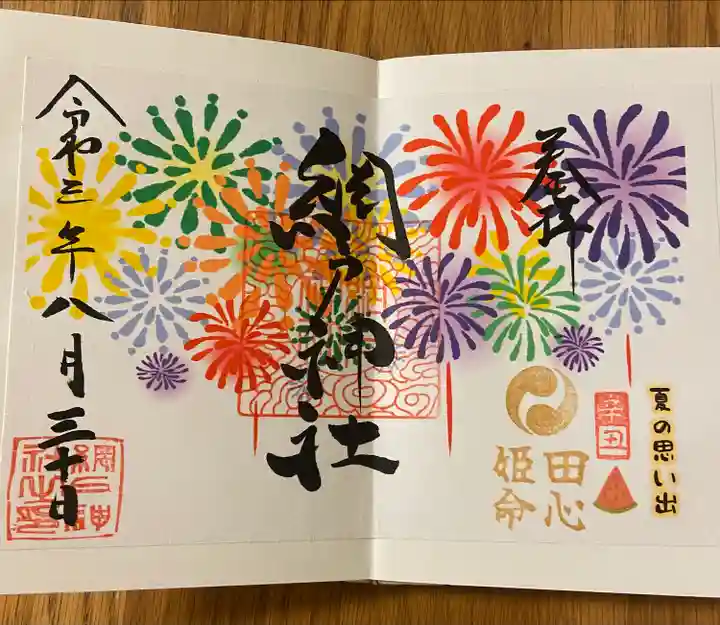 奉拝
夏の思い出
辛丑
田心
姫命
網戸神社
令和三年八月三十日
網戸神
社之印